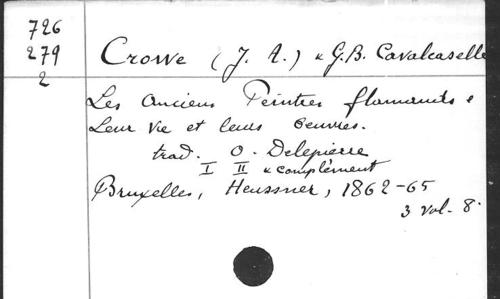 726
279
2
Crowe (J. A.) & G.B. Cavalcaselle
Les Anciens Peintres flamands,
Leur vie et leurs Oeuvres.
trad. O. Delepierre
I II & complément
Bruxelles, Heussner, 1862-65
3 vol. 8°